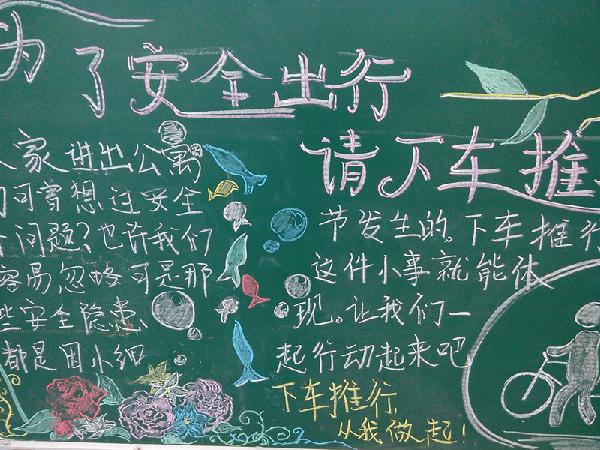 为了安全出行
请下车推
家进出公寓
们可曾想过安全
问题?也许我们
容易忽略可是那
些安全隐患,
都是因小细
节发生的。下车推行
这件小事就能体
现。让我们一
起行动起来吧
下车推行,
从我做起!